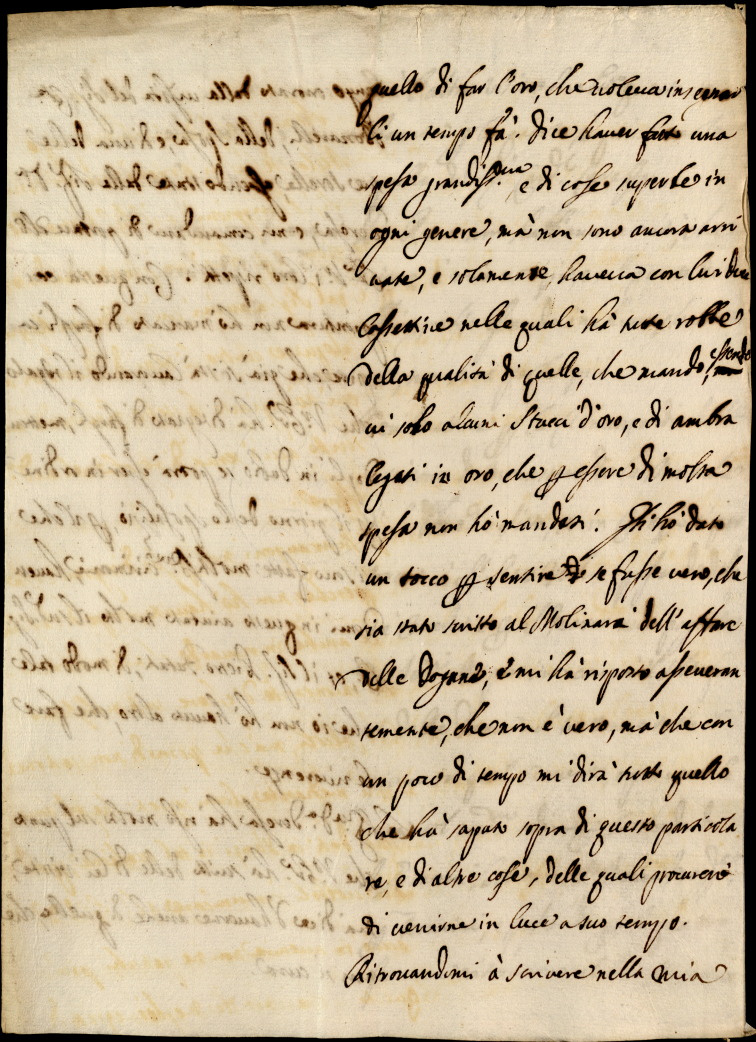 quello di far l'oro, che voleva insegnar
li un tempo fà. Dice haver fatto una
spesa grandiss.ma e di cose superbe in
ogni genere, mà non sono ancora arri
vate, e solamente haveva con lui due
Cassettine nelle quali hà tutte robbe
della qualità di quelle, che mando, essendo
ui solo alcuni Stucci d'oro, e di ambra
legati in oro, che p essere di molta
spesa non hò mandati. Gli hò dato
un tocco p sentire se fusse vero, che
sia stato scritto al Molinari dell'affare
delle Dogane, e mi hà risposto asseveran
temente, che non è vero, mà che con
un poco di tempo mi dirà tutto quello
che hà saputo sopra di questo particola
re, e di altre cose, delle quali procurerò
di venirne in luce a suo tempo.
Ritrovandomi à scrivere nella mia